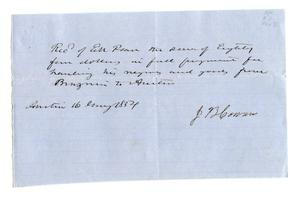 Recd of E M Pease the sum of Eighty
four dollars in full payment for
hauling his negros and goods from
Brazoria to Austin
Austin 16 Jany 1854
J B Cowan